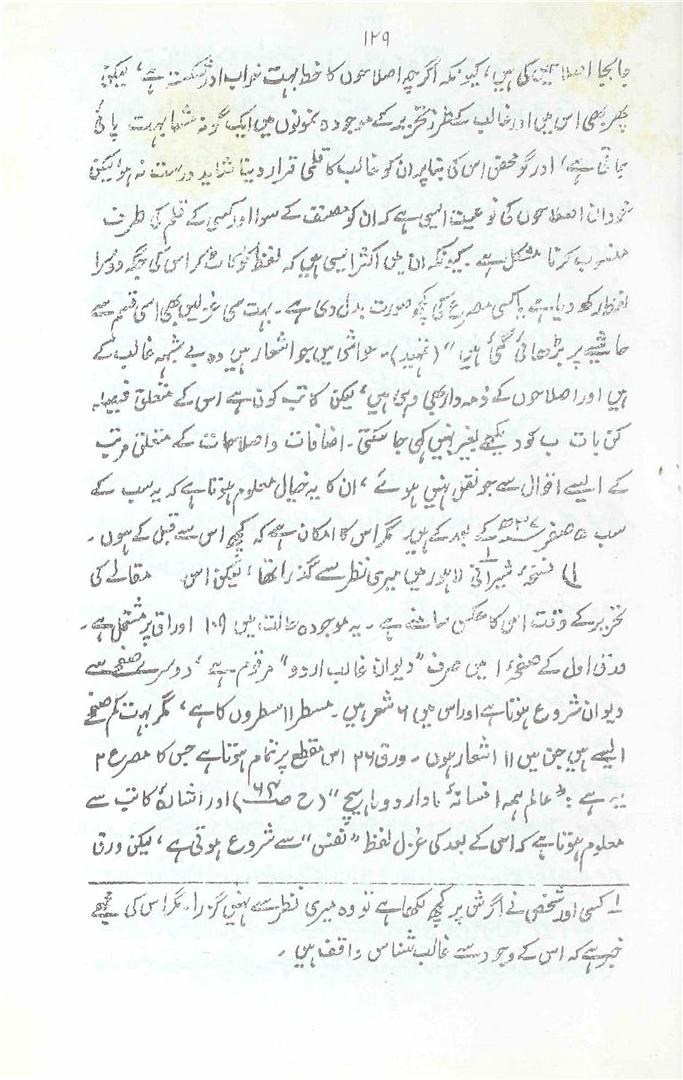 ۱۲۹
جا بجا اصلاحیں کی ہیں، کیونکہ اگرچہ اصلاحوں کا خط بہت خراب اور شکست ہے، لیکن
پھر بھی اس میں اور غالب کے طرز تحریر کے موجودہ نمونوں میں ایک گونہ مشابہت پائی
جاتی ہے، اور گو محض اس کی بنا پر ان کو غالب کا قلمی قرار دینا شاید درست نہ ہو لیکن
خود ان اصلاحوں کی نوعیت ایسی ہے کہ ان کو مصنف کے سوا اور کسی کے قلم کی طرف
منسوب کرنا مشکل ہے۔ کیونکہ ان میں اکثر ایسی ہیں کہ لفظ کو کاٹ کر اس کی جگہ دوسرا
لفظ رکھ دیا ہے یا کسی مصرع کی کچھ صورت بدل دی ہے۔ بہت سی غزلیں بھی اسی قلم سے
حاشیے پر بڑھائی گئی ہیں" (تمہید)۔ حواشی میں جو اشعار ہیں وہ بے شبہہ غالب کے
ہیں اور اصلاحوں کے ذمہ دار بھی وہی ہیں، لیکن کاتب کون ہے اس کے متعلق فیصلہ
کن بات کو دیکھے بغیر نہیں کہی جا سکتی۔ اضافات و اصلاحات کے متعلق مرتب
کے ایسے اقوال سے جو نقل نہیں ہوئے، ان کا یہ خیال معلوم ہوتا ہے کہ یہ سب کے
سب ۵ صفر ۱۲۳۷ھ کے بعد کے ہیں۔ مگر اس کا امکان ہے کہ کچھ اس سے قبل کے ہوں۔
نسخۂ شیرانی ۱؎ لاہور میں میری نظر سے گذرا تھا، لیکن اس مقالے کی
تحریر کے وقت اس کا عکس سامنے ہے۔ یہ موجودہ حالت میں ۱۰۹ اوراق پر مشتمل ہے۔
ورق اول کے صفحۂ ۱ میں صرف "دیوان غالب اردو" مرقوم ہے، دوسرے صفحے سے
دیوان شروع ہوتا ہے اور اس میں ۶ شعر ہیں۔ مسطر ۱۱ سطروں کا ہے، مگر بہت کم صفحے
ایسے ہیں جن میں ۱۱ اشعار ہوں۔ ورق ۲۶ اس مقطع پر تمام ہوتا ہے جس کا مصرع ۲
یہ ہے: "عالم ہمہ افسانۂ ما دارد و ما ہیچ" (ح ص ۶۳) اور اشارۂ کاتب سے
معلوم ہوتا ہے کہ اس کے بعد کی غزل لفظ "نفسی" سے شروع ہوتی ہے، لیکن ورق
۱؎ کسی اور شخص نے اگر اس پر کچھ لکھا ہے تو وہ میری نظر سے نہیں گزرا۔ مگر اس کی مجھے
خبر ہے کہ اس کے وجود سے غالب شناس واقف ہیں۔